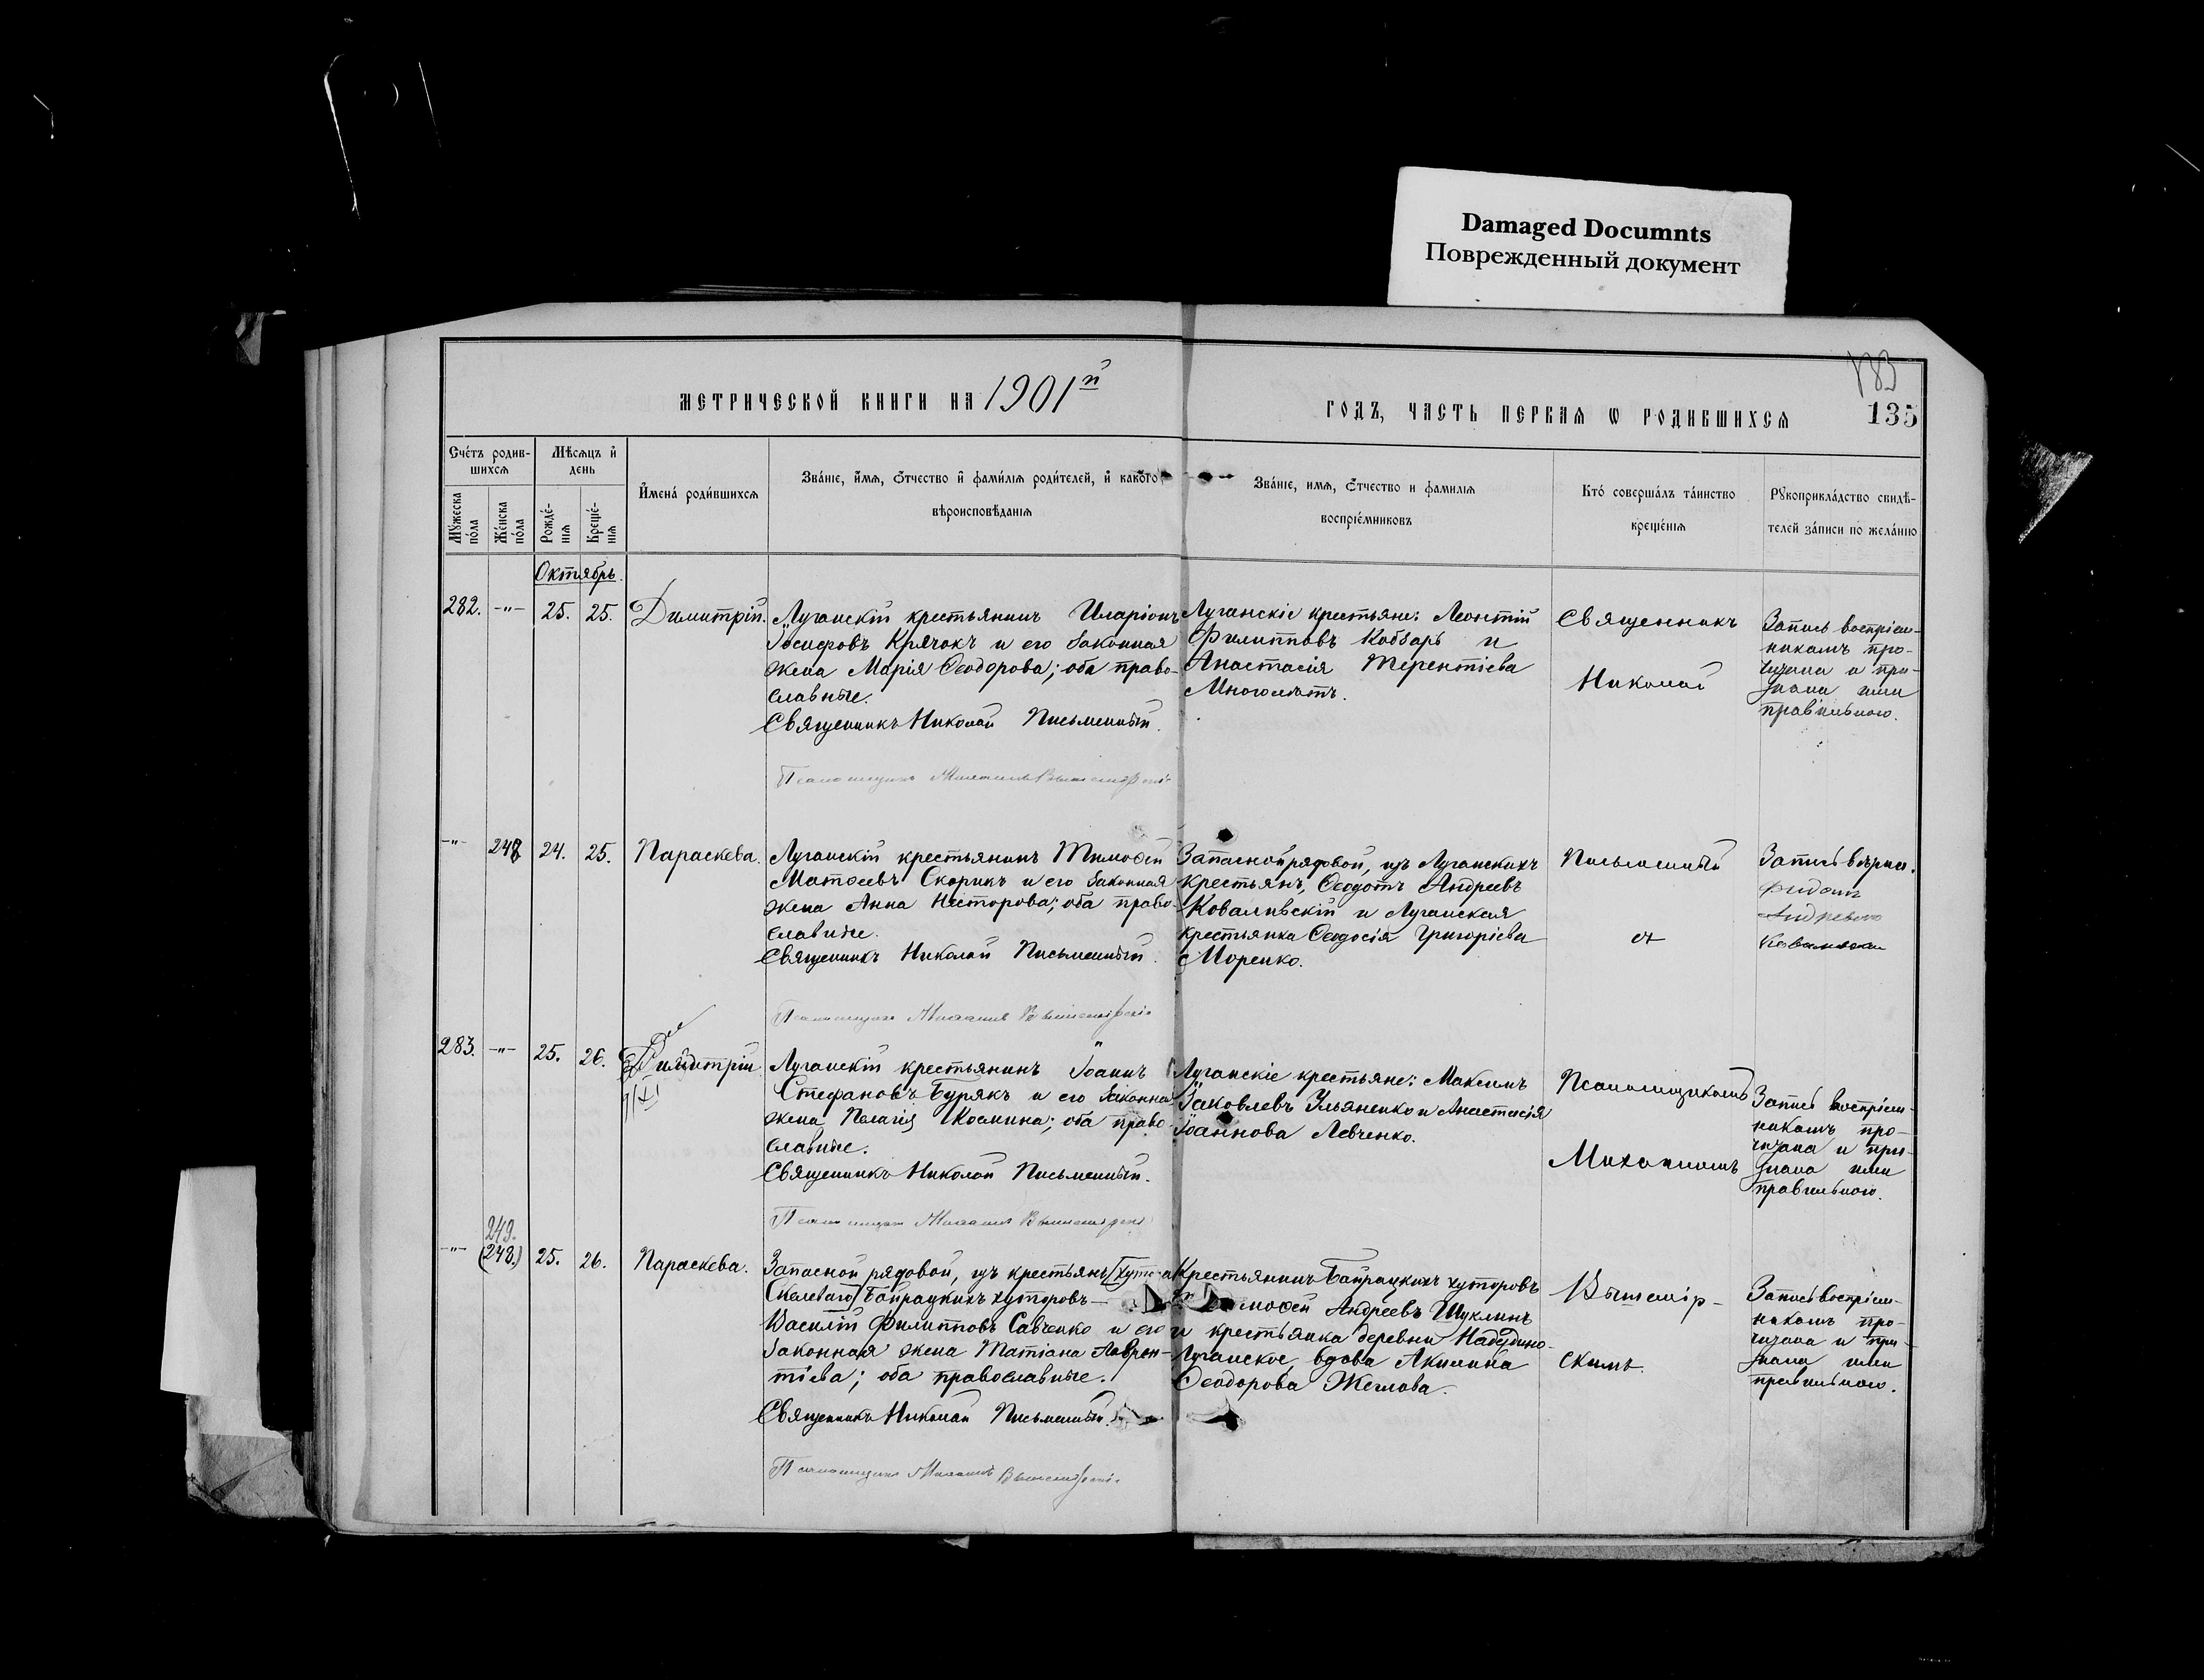 Damaged Documnts
Поврежденный документ
183
135
МЕТРИЧЕСКОЙ КНИГИ НА 1901й ГОДЪ, ЧАСТЬ ПЕРВАЯ Ѡ РОДИВШИХСЯ
Счетъ родив-
шихся
Мужеска
пола
Женска
пола
Мѣсяцъ и
день
Рожде-
нія
Креще-
нія
Имена родившихся
Званіе, имя, отчество и фамилія родителей, и какого
вѣроисповѣданія
Званіе, имя, отчество и фамилія
воспріемниковъ
Кто совершалъ таинство
крещенія
Рукоприкладство свидѣ-
телей записи по желанію
Октябрь.
282. -"- 25. 25. Димитрій.
Луганскій крестьянинъ Иларіонъ
Іосифовъ Крячокъ и его законная
жена Марія Ѳеодорова; оба право-
славные.
Священникъ Николай Письменный.
Псаломщикъ Михаилъ Вышемірскій
Луганскіе крестьяне: Леонтій
Филипповъ Кобзарь и
Анастасія Терентіева
Священникъ
Николай
Запись воспріем-
никамъ про-
читана и при-
знана ими
правильною.
-"- 248 24. 25. Параскева.
Луганскій крестьянинъ Тимоѳей
Матѳеевъ Скорикъ и его законная
жена Анна Несторова; оба право-
славные.
Священникъ Николай Письменный.
Псаломщикъ Михаилъ Вышемірскій
Запасной рядовой, изъ Луганскихъ
крестьянъ, Ѳеодотъ Андреевъ
Коваливскій и Луганская
крестьянка Ѳеодосія Григоріева
Моренко.
Письменный
съ
Запись вѣрна.
283. -"- 25. 26. Димитрій.
Луганскій крестьянинъ Іоаннъ
Стефановъ Бурякъ и его законная
жена Пелагія Космина; оба право-
славные.
Священникъ Николай Письменный.
Псаломщикъ Михаилъ Вышемірскій
Луганскіе крестьяне: Максимъ
Іаковлевъ Ульяненко и Анастасія
Іоаннова Левченко.
Псаломщикомъ
Михаиломъ
Запись воспріем-
никамъ про-
читана и при-
знана ими
правильною.
249.
-"- (248.) 25. 26. Параскева.
Запасной рядовой, изъ крестьянъ
Скелеваго Байрацкихъ хуторовъ—
Василій Филипповъ Савченко и его
законная жена Татіана Лаврен-
тіева; оба православные.
Священникъ Николай Письменный.
Псаломщикъ Михаилъ Вышемірскій
Крестьянинъ Байрацкихъ хуторовъ
моѳей Андреевъ Шуклинъ
и крестьянка деревни
Луганское, вдова Акилина
Ѳеодорова Жеглова.
Вышемір-
скимъ.
Запись воспріем-
никамъ про-
читана и при-
знана ими
правильною.